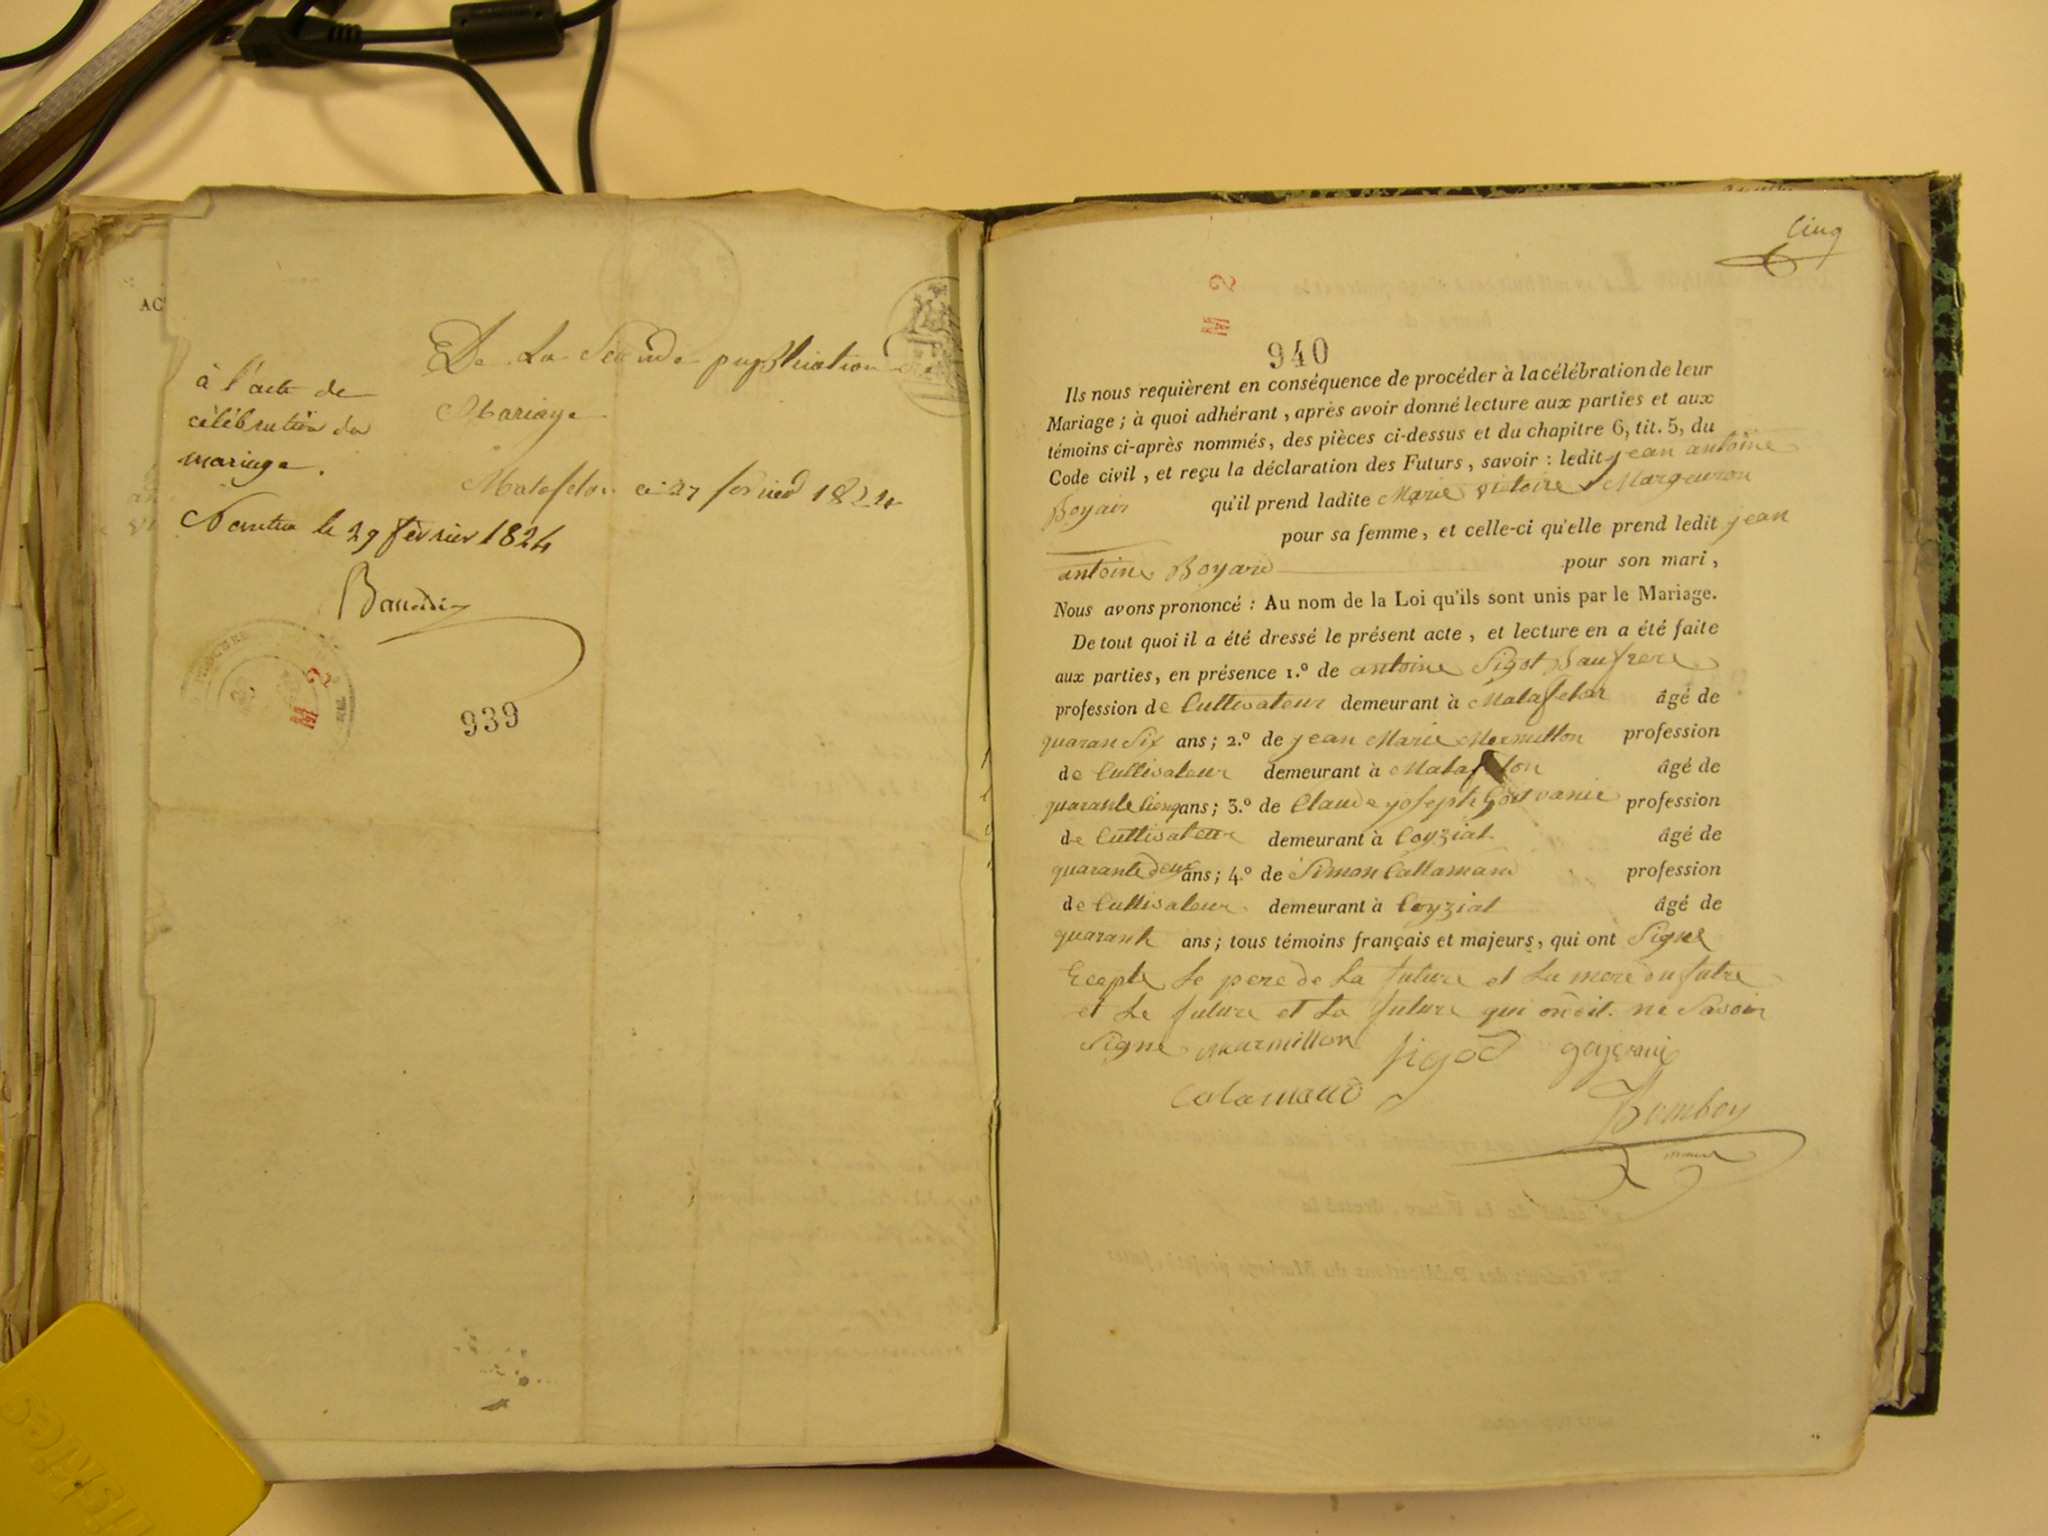 AC
De La Seconde publication de
à l'acte de
célébration du
mariage.
Mariage
Matafelon ce 27 fevrier 1824
Nantua le 29 février 1824
939
Cinq
940
Ils nous requièrent en conséquence de procéder à la célébration de leur
Mariage ; à quoi adhérant, après avoir donné lecture aux parties et aux
témoins ci-après nommés, des pièces ci-dessus et du chapitre 6, tit. 5, du
Code civil, et reçu la déclaration des Futurs, savoir : ledit jean antoine
Boyair qu'il prend ladite Marie Victoire Margueron
pour sa femme, et celle-ci qu'elle prend ledit jean
antoine Boyard pour son mari,
Nous avons prononcé : Au nom de la Loi qu'ils sont unis par le Mariage.
De tout quoi il a été dressé le présent acte, et lecture en a été faite
aux parties, en présence 1.º de antoine Sigot Baufrere
profession de Cultivateur demeurant à Matafelon âgé de
quaran Six ans ; 2.º de jean Marie Mermillon profession
de Cultivateur demeurant à Matafelon âgé de
quarante Cienq ans ; 3.º de Claude joseph profession
de Cultivateur demeurant à Coyziat âgé de
quarante deux ans ; 4.º de Simon Callamard profession
de Cultivateur demeurant à Coyziat âgé de
quarante ans ; tous témoins français et majeurs, qui ont Signé
Ecepte Le pere de La future et La mere du futre
et Le future et La future qui ont dit ne Savoir
Signe marmillon Sigod goyvanie
Calamard
Bomboy
maire